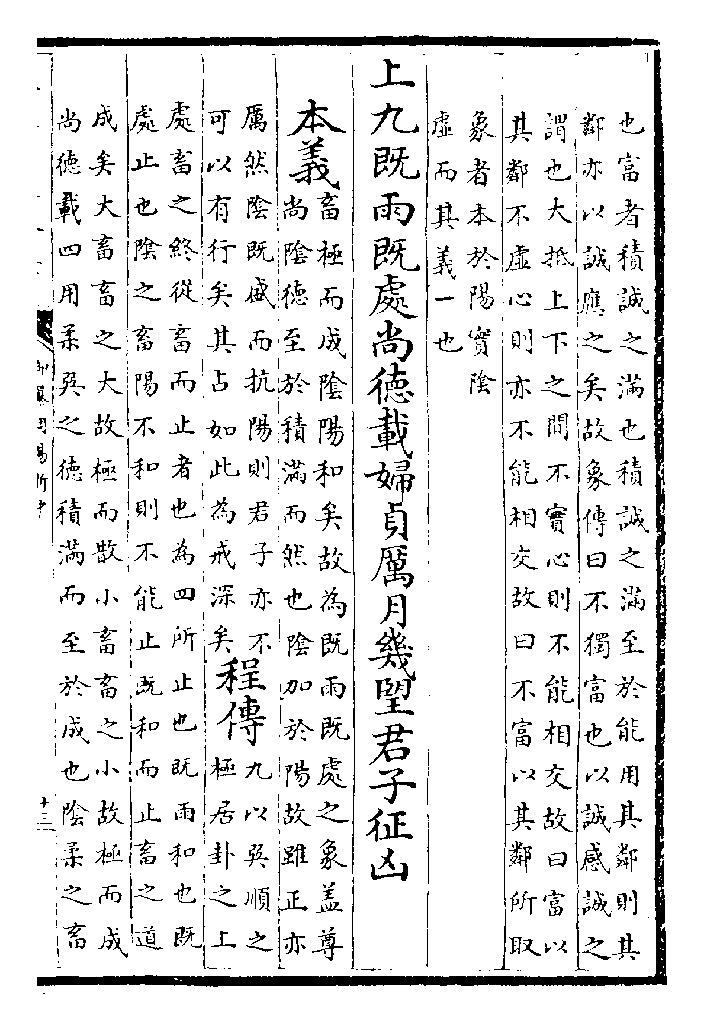 也富者積誠之滿也積誠之滿至於能用其鄰則其
鄰亦以誠應之矣故象傳曰不獨富也以誠感誠之
謂也大抵上下之間不實心則不能相交故曰富以
其鄰不虛心則亦不能相交故曰不富以其鄰所取
象者本於陽實陰
虛而其義一也
上九既雨既處尚德載婦貞厲月幾望君子征凶
本義
畜極而成陰陽和矣故為既雨既處之象蓋尊
尚陰德至於積滿而然也陰加於陽故雖正亦
厲然陰既盛而抗陽則君子亦不
可以有行矣其占如此為戒深矣
程傳
九以巽順之
極居卦之上
處畜之終從畜而止者也為四所止也既雨和也既
處止也陰之畜陽不和則不能止既和而止畜之道
成矣大畜畜之大故極而散小畜畜之小故極而成
尚德載四用柔巽之德積滿而至於成也陰柔之畜
十三